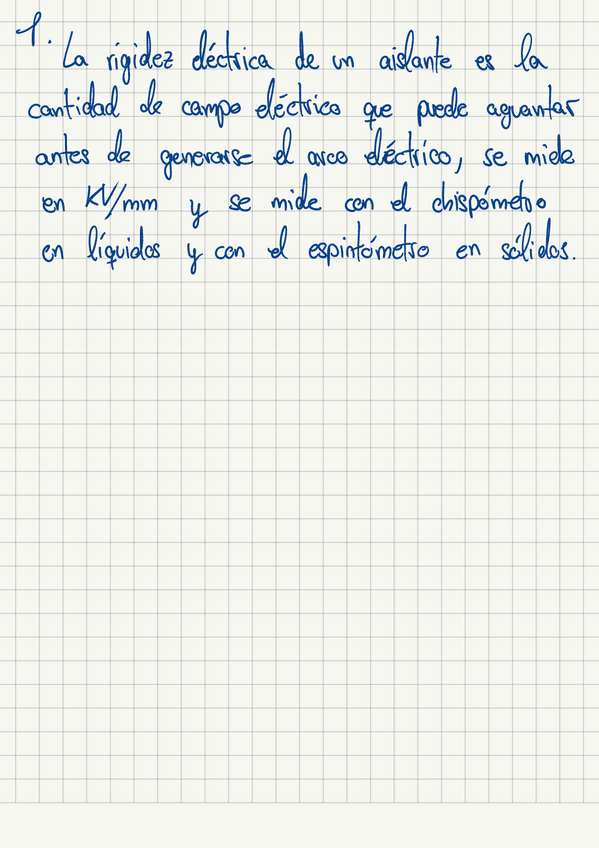 1.
La rigidez eléctrica de un aislante es la
cantidad de campo eléctrico que puede aguantar
antes de generarse el arco eléctrico, se mide
en KV/mm y se mide con el chispómetro
en líquidos y con el espintómetro en sólidos.